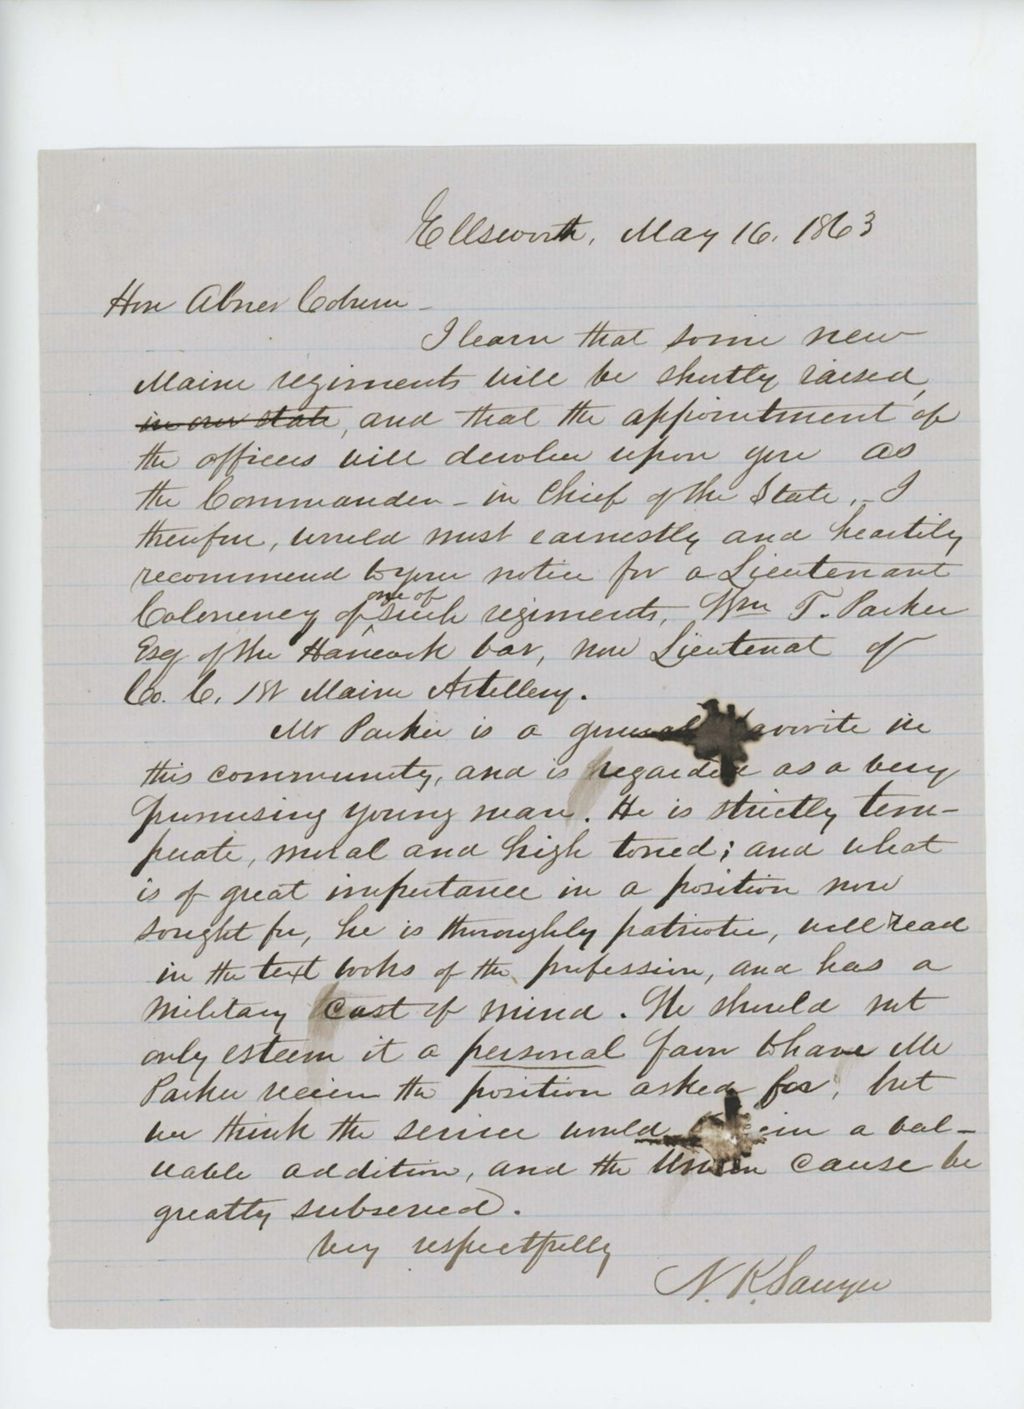 Ellsworth, May 16. 1863
Hon Abner Coburn -
I learn that some new
Maine regiments will be shortly raised,
in our state, and that the appointment of
the officers will devolve upon you as
the Commander - in Chief of the State, - I
therefore, would most earnestly and heartily
recommend to your notice for a Lieutenant
Coloneney of one of such regiments, Wm T. Parker
Esq of the Hancock bar, now Lieutenat of
Co. C. 1st Maine Artillery.
Mr Parker is a general favorite in
this community, and is regarded as a very
promising young man. He is strictly tem-
perate, moral and high toned; and what
is of great importance in a position now
sought for, he is thoroughly patriotic, well read
in the text books of the profession, and has a
military cast of mind. We should not
only esteem it a personal favor to have Mr
Parker receive the position asked for, but
we think the service would a val-
uable addition, and the Union cause be
greatly subserved.
Very respectfully
N. K. Sawyer